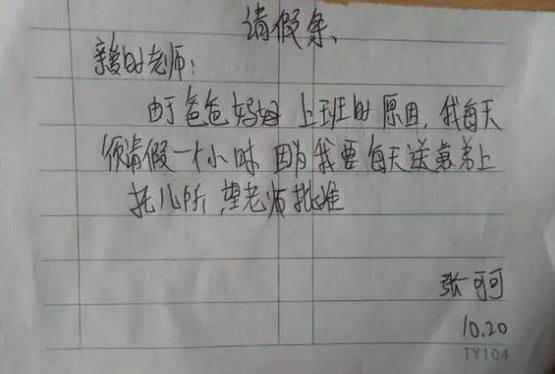 请假条、
亲爱的老师：
由于爸爸妈妈上班的原因，我每天
须请假一个小时 因为我要每天送弟弟上
托儿所，望老师批准
张可可
10.20
TY104